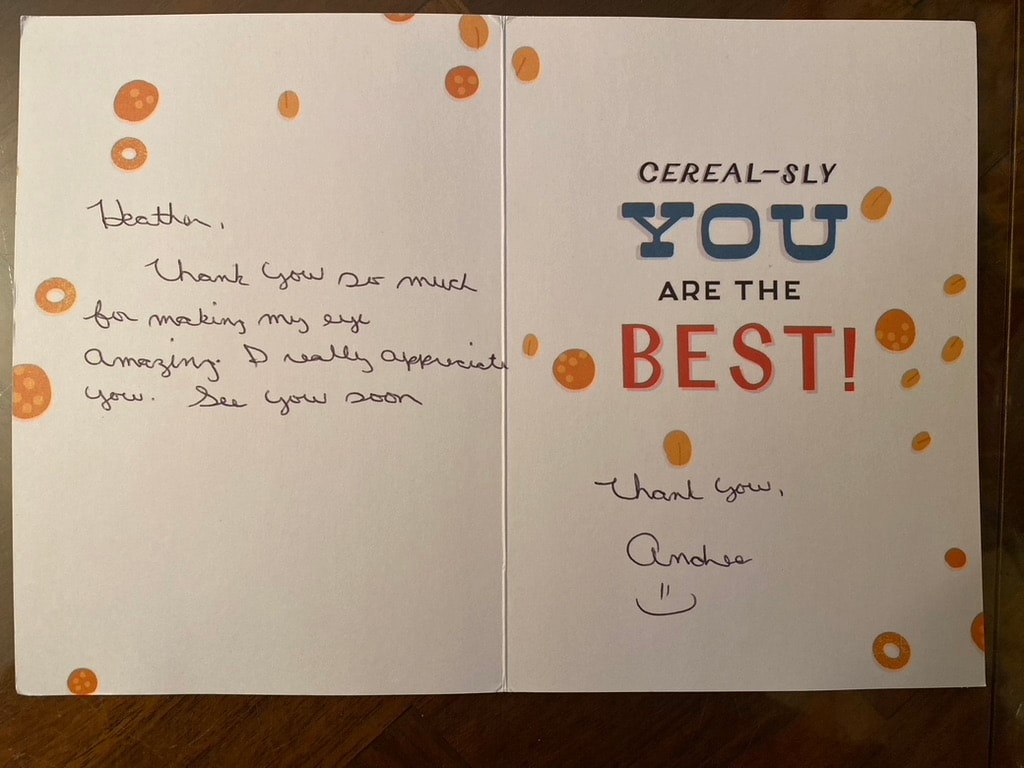 Heather,
Thank you so much
for making my eye
amazing. I really appreciate
you. See you soon
CEREAL-SLY
YOU
ARE THE
BEST!
Thank you,
Andrea